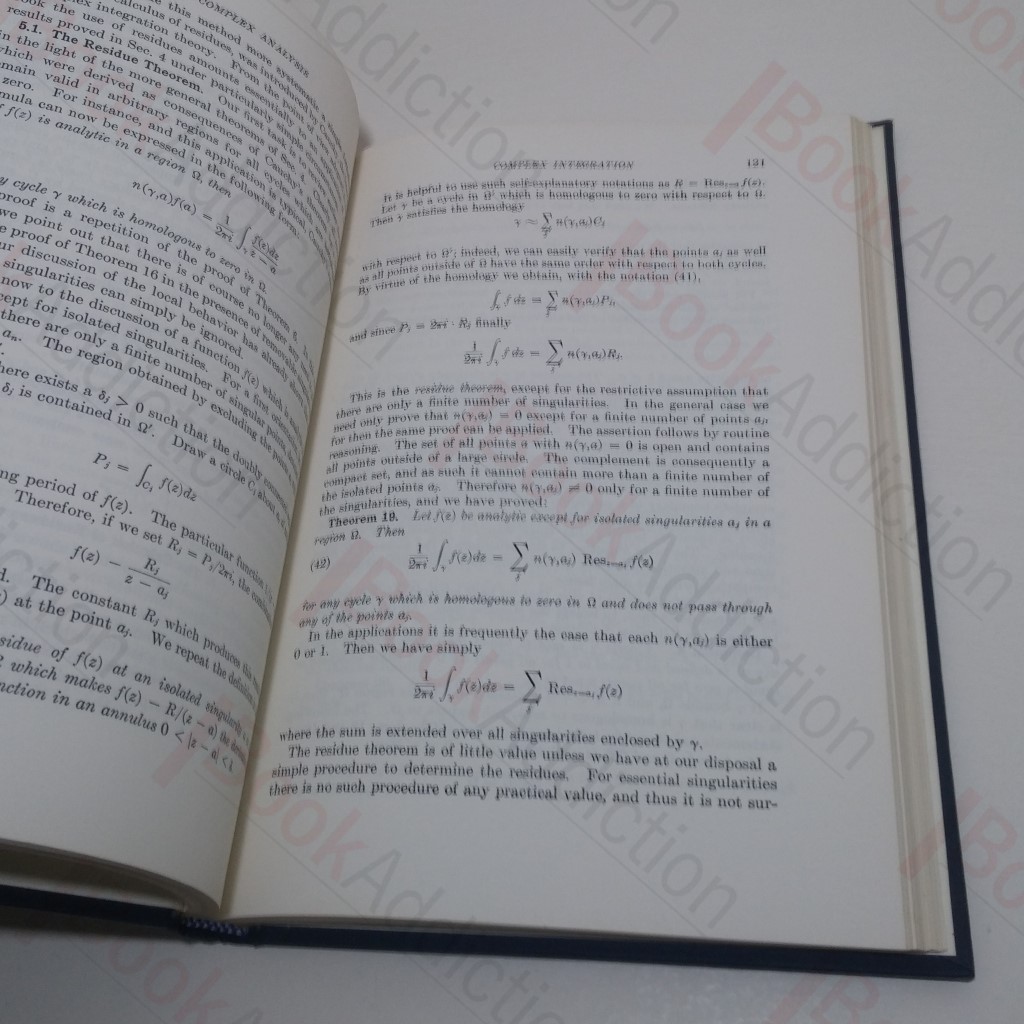 COMPLEX ANALYSIS
this method more systematic
calculus of residues, was introduced
complex integration theory. From the point of
the use of residues amounts essentially to
results proved in Sec. 4 under particularly simple
5.1. The Residue Theorem. Our first task is to
in the light of the more general theorem of Sec. 4.
which were derived as consequences of Cauchy's
remain valid in arbitrary regions for all cycles which
zero. For instance, and this application is typical,
formula can now be expressed in the following form:
f(z) is analytic in a region Ω, then
n(γ,a)f(a) = 1/2πi ∫γ f(z)dz/z − a
cycle γ which is homologous to zero in Ω.
proof is a repetition of the proof of Theorem 6.
we point out that there is of course no longer any
proof of Theorem 16 in the presence of
our discussion of the local behavior has already
singularities can simply be ignored.
now to the discussion of a function f(z) which is
except for isolated singularities. For a first
there are only a finite number of singular points,
aₙ. The region obtained by excluding the points
there exists a δⱼ > 0 such that the doubly connected
δⱼ is contained in Ω′. Draw a circle Cⱼ about
Pⱼ = ∫Cⱼ f(z)dz
period of f(z). The particular function
Therefore, if we set Rⱼ = Pⱼ/2πi, the
f(z) − Rⱼ/z − aⱼ
The constant Rⱼ which produces this
at the point aⱼ. We repeat the definition
residue of f(z) at an isolated singularity
which makes f(z) − R/(z − a) the
function in an annulus 0 < |z − a| < δ.
COMPLEX INTEGRATION 121
It is helpful to use such self-explanatory notations as R = Res_{z=a} f(z).
Let γ be a cycle in Ω′ which is homologous to zero with respect to Ω.
Then γ satisfies the homology
γ ~ ∑ⱼ n(γ,aⱼ)Cⱼ
with respect to Ω′; indeed, we can easily verify that the points aⱼ as well
as all points outside of Ω have the same order with respect to both cycles.
By virtue of the homology we obtain, with the notation (41),
∫γ f dz = ∑ⱼ n(γ,aⱼ)Pⱼ,
and since Pⱼ = 2πi · Rⱼ finally
1/2πi ∫γ f dz = ∑ⱼ n(γ,aⱼ)Rⱼ.
This is the residue theorem, except for the restrictive assumption that
there are only a finite number of singularities. In the general case we
need only prove that n(γ,aⱼ) = 0 except for a finite number of points aⱼ,
for then the same proof can be applied. The assertion follows by routine
reasoning. The set of all points a with n(γ,a) = 0 is open and contains
all points outside of a large circle. The complement is consequently a
compact set, and as such it cannot contain more than a finite number of
the isolated points aⱼ. Therefore n(γ,aⱼ) ≠ 0 only for a finite number of
the singularities, and we have proved:
Theorem 19. Let f(z) be analytic except for isolated singularities aⱼ in a
region Ω. Then
(42) 1/2πi ∫γ f(z)dz = ∑ⱼ n(γ,aⱼ) Res_{z=aⱼ} f(z)
for any cycle γ which is homologous to zero in Ω and does not pass through
any of the points aⱼ.
In the applications it is frequently the case that each n(γ,aⱼ) is either
0 or 1. Then we have simply
1/2πi ∫γ f(z)dz = ∑ⱼ Res_{z=aⱼ} f(z)
where the sum is extended over all singularities enclosed by γ.
The residue theorem is of little value unless we have at our disposal a
simple procedure to determine the residues. For essential singularities
there is no such procedure of any practical value, and thus it is not sur-
BookAddiction